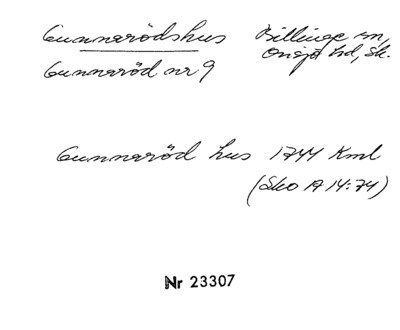 Gunnarödshus Billinge sn,
Onsjö hd, Sk.
Gunnaröd nr 9
Gunnaröd hus 1744 Kml
(Sko A 14:74)
Nr 23307